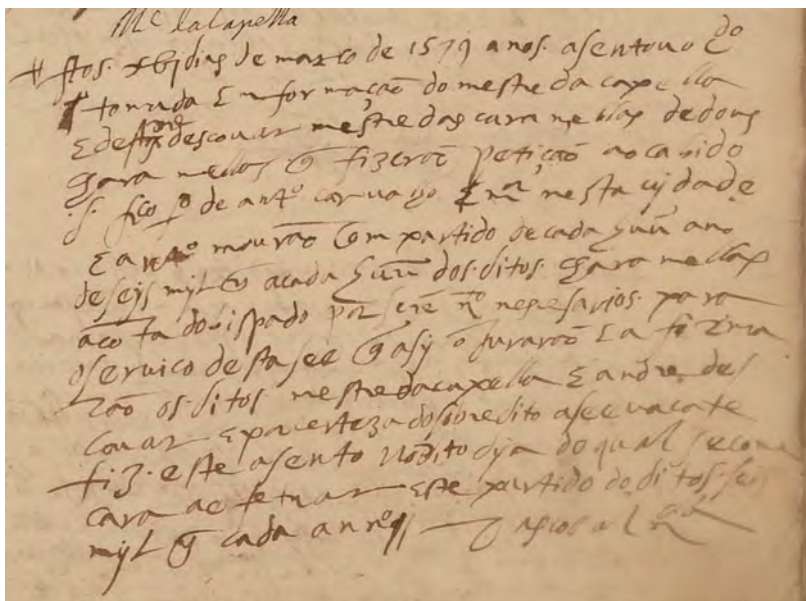 Mᵉ da Capella
Aos xbj dias de março de 1579 anos asentou o Cᵈᵒ
tomada Enformação do mestre da capella
E de descouar mestre das charamellas de dous
charamellas q̃ fizerão petição ao cabido
.s. frᶜᵒ pᵒ de antᵒ carualho E mᵒʳ nesta cydade
E antᵒ mourão Com partido de cada huũ ano
de seys myl rs̃ a cada huũ dos ditos charamellas
a custa do bispado por serẽ necesarios para
o seruiço desta see q̃ asy o jurarão E a firma
rão os ditos mestre da capella E andre des
couar E por certeza do sobredito a see vacate
fiz este asento no dito dja do qual se come
cara a efetuar este partido do ditos seis
myl rs̃ cada anno